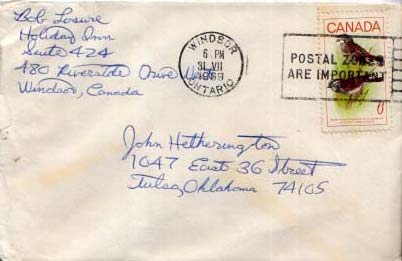 Bob Losure
Holiday Inn
Suite 424
480 Riverside Drive
Windsor, Canada
WINDSOR
6 PM
31 VII
1969
ONTARIO
POSTAL ZONES
ARE IMPORTANT
CANADA
6
John Hetherington
1047 East 36 Street
Tulsa, Oklahoma 74105